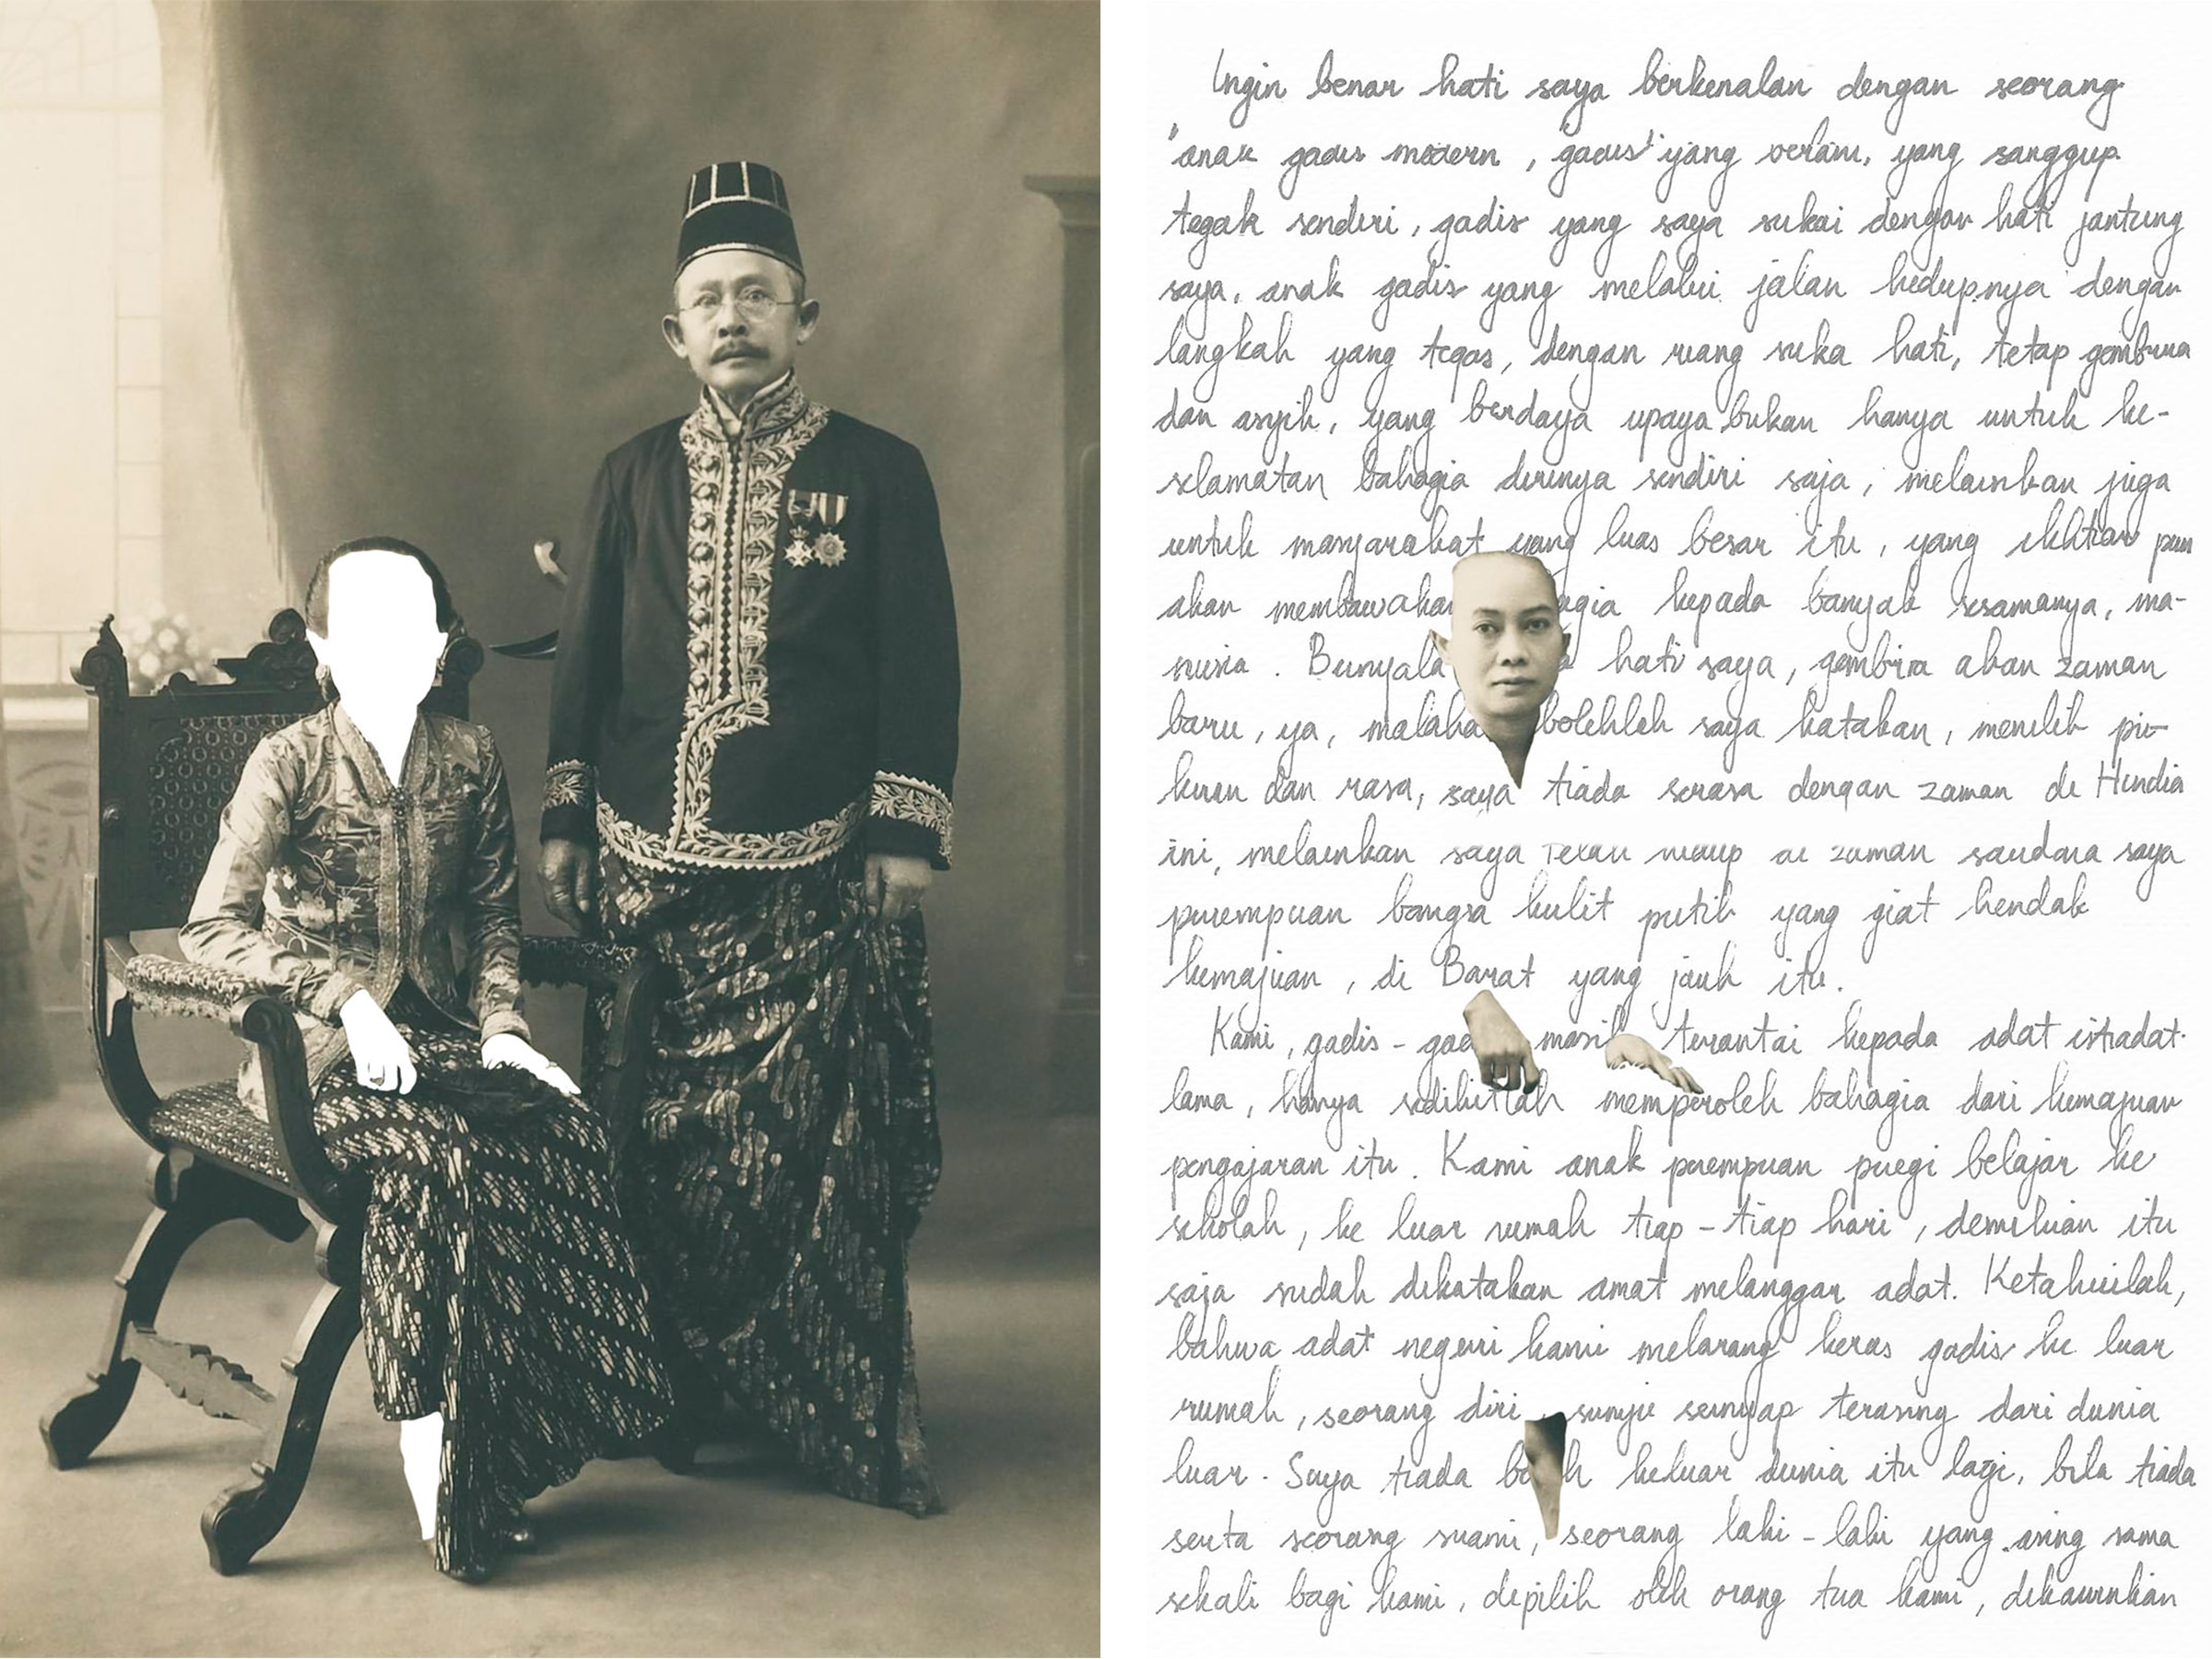 Ingin benar hati saya berkenalan dengan seorang
"anak gadis modern", gadis yang berani, yang sanggup
tegak sendiri, gadis yang saya sukai dengan hati jantung
saya, anak gadis yang melalui jalan hidupnya dengan
langkah yang tegas, dengan riang suka hati, tetap gembira
dan asyik, yang berdaya upaya bukan hanya untuk ke-
selamatan bahagia dirinya sendiri saja, melainkan juga
untuk masyarakat yang luas besar itu, yang ikhtiar pun
akan membawakan kepada banyak sesamanya, ma-
nusia. hati saya, gembira akan zaman
baru, ya, malaha bolehlah saya katakan, menilik pi-
kiran dan rasa, saya tiada serasa dengan zaman di Hindia
ini, melainkan saya telah hidup di zaman saudara saya
perempuan bangsa kulit putih yang giat hendak
kemajuan, di Barat yang jauh itu.
Kami, gadis-gad masih terantai kepada adat istiadat
lama, hanya sedikitlah memperoleh bahagia dari kemajuan
pengajaran itu. Kami anak perempuan pergi belajar ke
sekolah, ke luar rumah tiap-tiap hari, demikian itu
saja sudah dikatakan amat melanggar adat. Ketahuilah,
bahwa adat negeri kami melarang keras gadis ke luar
rumah, seorang diri, sunyi senyap terasing dari dunia
luar. Saya tiada keluar dunia itu lagi, bila tiada
serta seorang suami, seorang laki-laki yang asing sama
sekali bagi kami, dipilih oleh orang tua kami, dikawinkan